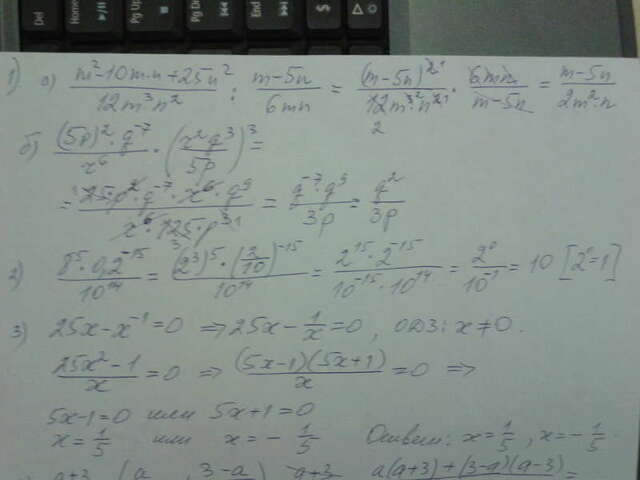 Del
Home
Pg Up
Pg Dn
End
Ins
$
1) а) (m²-10m·n+25n²)/(12m³n²) : (m-5n)/(6mn) = (m-5n)²¹/(12m³²·n²¹) · 6mn/(m-5n) = (m-5n)/(2m²·n)
2
б) ((5p)²·q⁻⁷)/x⁶ · (x²q³/5p)³ =
= (25·p²·q⁻⁷·x⁶·q⁹)/(x⁶·125·p³¹) = (q⁻⁷·q⁹)/3p = q²/3p
3
2) (8⁵·0,2⁻¹⁵)/10¹⁴ = ((2³)⁵·(2/10)⁻¹⁵)/10¹⁴ = (2¹⁵·2⁻¹⁵)/(10⁻¹⁵·10¹⁴) = 2⁰/10⁻¹ = 10 [2⁰=1]
3) 25x-x⁻¹=0 ⇒ 25x-1/x=0, ОДЗ: x≠0.
(25x²-1)/x=0 ⇒ ((5x-1)(5x+1))/x=0 ⇒
5x-1=0 или 5x+1=0
x=1/5 или x=-1/5 Ответ: x=1/5, x=-1/5.
a+3 (a 3-a) a+3 a(a+3)+(3-a)(a-3) =